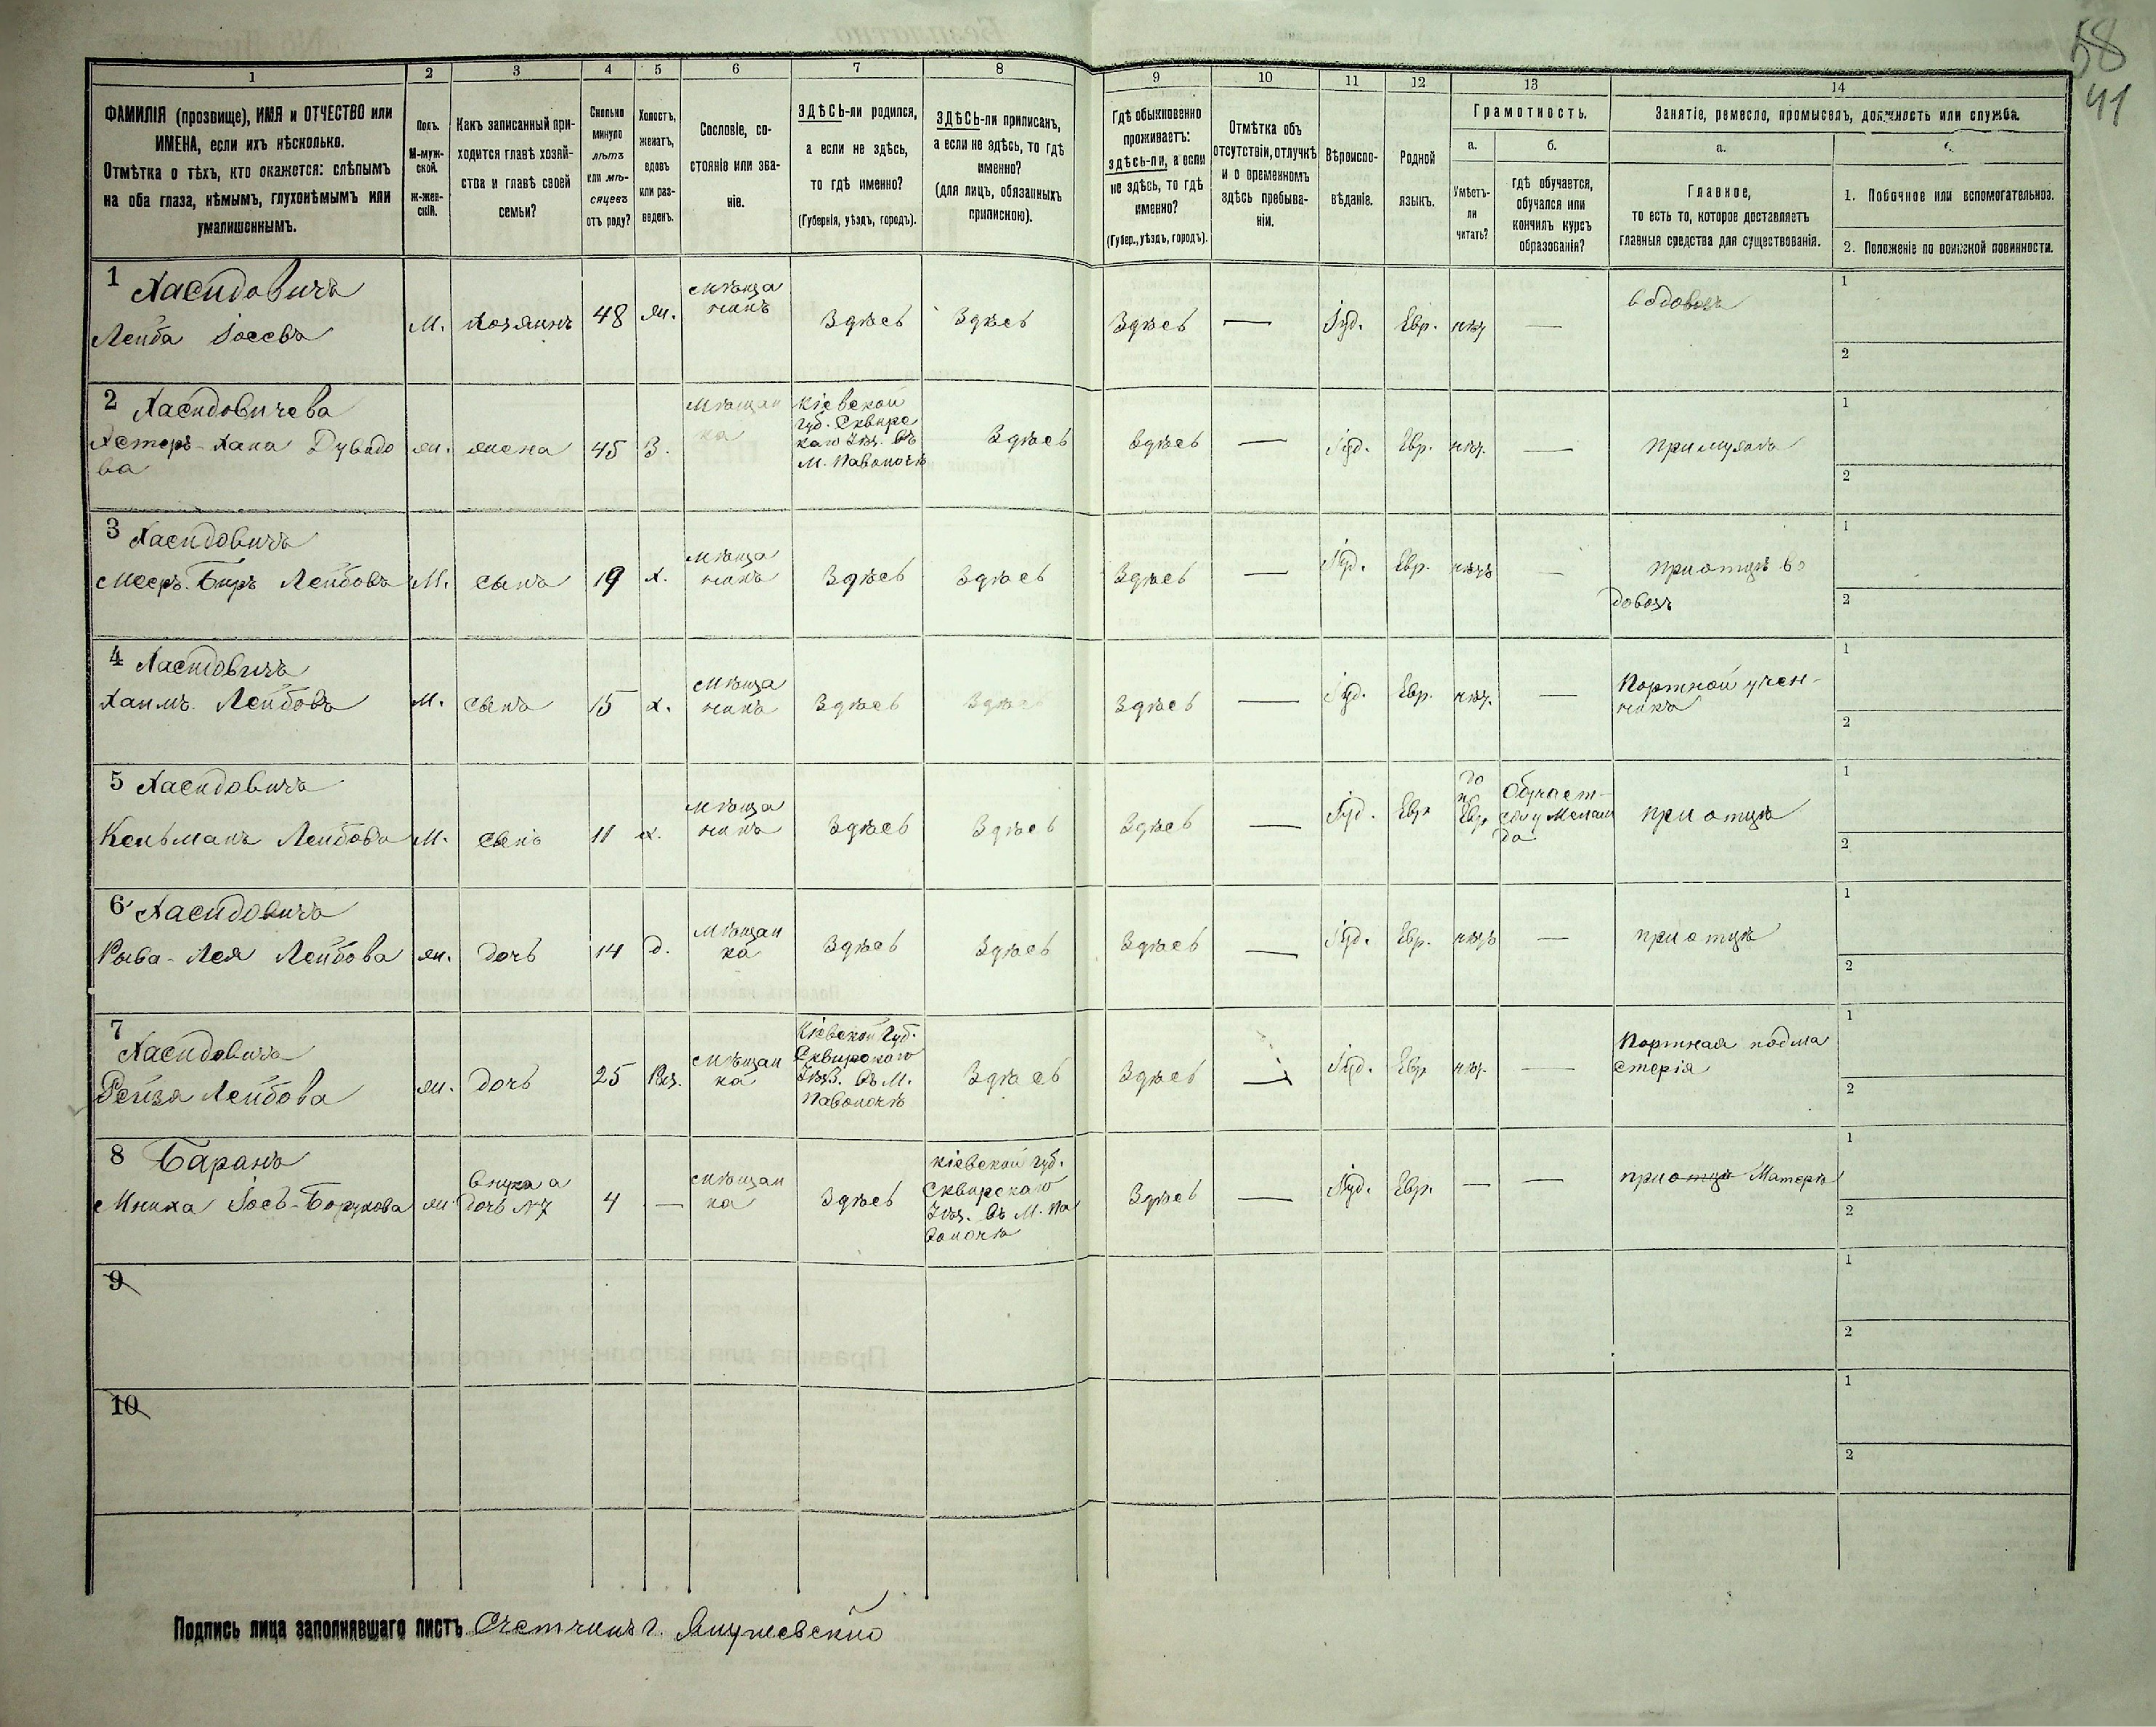 58
41
1
2
3
4
5
6
7
8
9
10
11
12
13
14
ФАМИЛІЯ (прозвище), ИМЯ и ОТЧЕСТВО или
ИМЕНА, если ихъ нѣсколько.
Отмѣтка о тѣхъ, кто окажется: слѣпымъ
на оба глаза, нѣмымъ, глухонѣмымъ или
умалишеннымъ.
Полъ.
М-муж-
ской.
Ж-жен-
скій.
Какъ записанный при-
ходится главѣ хозяй-
ства и главѣ своей
семьи?
Сколько
минуло
лѣтъ
или мѣ-
сяцевъ
отъ роду?
Холостъ,
женатъ,
вдовъ
или раз-
веденъ.
Сословіе, со-
стояніе или зва-
ніе.
ЗДѢСЬ-ли родился,
а если не здѣсь,
то гдѣ именно?
(Губернія, уѣздъ, городъ).
ЗДѢСЬ-ли приписанъ,
а если не здѣсь, то гдѣ
именно?
(для лицъ, обязанныхъ
припискою).
Гдѣ обыкновенно
проживаетъ:
здѣсь-ли, а если
не здѣсь, то гдѣ
именно?
(Губер., уѣздъ, городъ).
Отмѣтка объ
отсутствіи, отлучкѣ
и о временномъ
здѣсь пребыва-
ніи.
Вѣроиспо-
вѣданіе.
Родной
языкъ.
Грамотность.
а.
Умѣетъ-
ли
читать?
б.
гдѣ обучается,
обучался или
кончилъ курсъ
образованія?
Занятіе, ремесло, промыселъ, должность или служба.
а.
Главное,
то есть то, которое доставляетъ
главныя средства для существованія.
1. Побочное или вспомогательное.
2. Положеніе по воинской повинности.
1 Хасидовичъ
Лейба Іосевъ
М.
Хозяинъ
48
Ж.
Мѣща
нинъ
Здѣсь
Здѣсь
Здѣсь
—
Іуд.
Евр.
нѣт
—
водовозъ
1
2
2 Хасидовичева
Хестеръ-Хана Дувидо
ва
Ж.
жена
45
З.
Мѣщан
ка
Кіевской
Губ. Сквирс
каго Уѣз. Въ
М. Паволочѣ
Здѣсь
Здѣсь
—
Іуд.
Евр.
нѣт.
—
при мужѣ
1
2
3 Хасидовичъ
Мееръ-Биръ Лейбовъ
М.
сынъ
19
Х.
Мѣща
нинъ
Здѣсь
Здѣсь
Здѣсь
—
Іуд.
Евр.
нѣтъ
—
при отцѣ во
довозъ
1
2
4 Хасидовичъ
Хаимъ Лейбовъ
М.
сынъ
15
Х.
Мѣща
нинъ
Здѣсь
Здѣсь
Здѣсь
—
Іуд.
Евр.
нѣт.
—
Портной учен-
никъ
1
2
5 Хасидовичъ
Кельманъ Лейбовъ
М.
сынъ
11
Х.
Мѣща
нинъ
Здѣсь
Здѣсь
Здѣсь
—
Іуд.
Евр
да
по
Евр
Обучает-
ся у Мелам
да
при отцѣ
1
2
6 Хасидовичъ
Рыва-Лея Лейбова
Ж.
дочь
14
Д.
Мѣщан
ка
Здѣсь
Здѣсь
Здѣсь
—
Іуд.
Евр.
нѣтъ
—
при отцѣ
1
2
7
Хасидовичъ
Рейза Лейбова
Ж.
дочь
25
Раз.
Мѣщан
ка
Кіевской Губ.
Сквирскаго
Уѣз. Въ М.
Паволочѣ
Здѣсь
Здѣсь
—
Іуд.
Евр
нѣт.
—
Портная подма
стерія
1
2
8 Баранъ
Миниха Іось-Борухова
Ж.
внука а
дочь №7
4
—
Мѣщан
ка
Здѣсь
Кіевской Губ.
Сквирскаго
Уѣз. Въ М. Па
волочѣ
Здѣсь
—
Іуд.
Евр.
—
—
при отцѣ Матерѣ
1
2
9
1
2
10
1
2
Подпись лица заполнявшаго листъ Счетчикъ